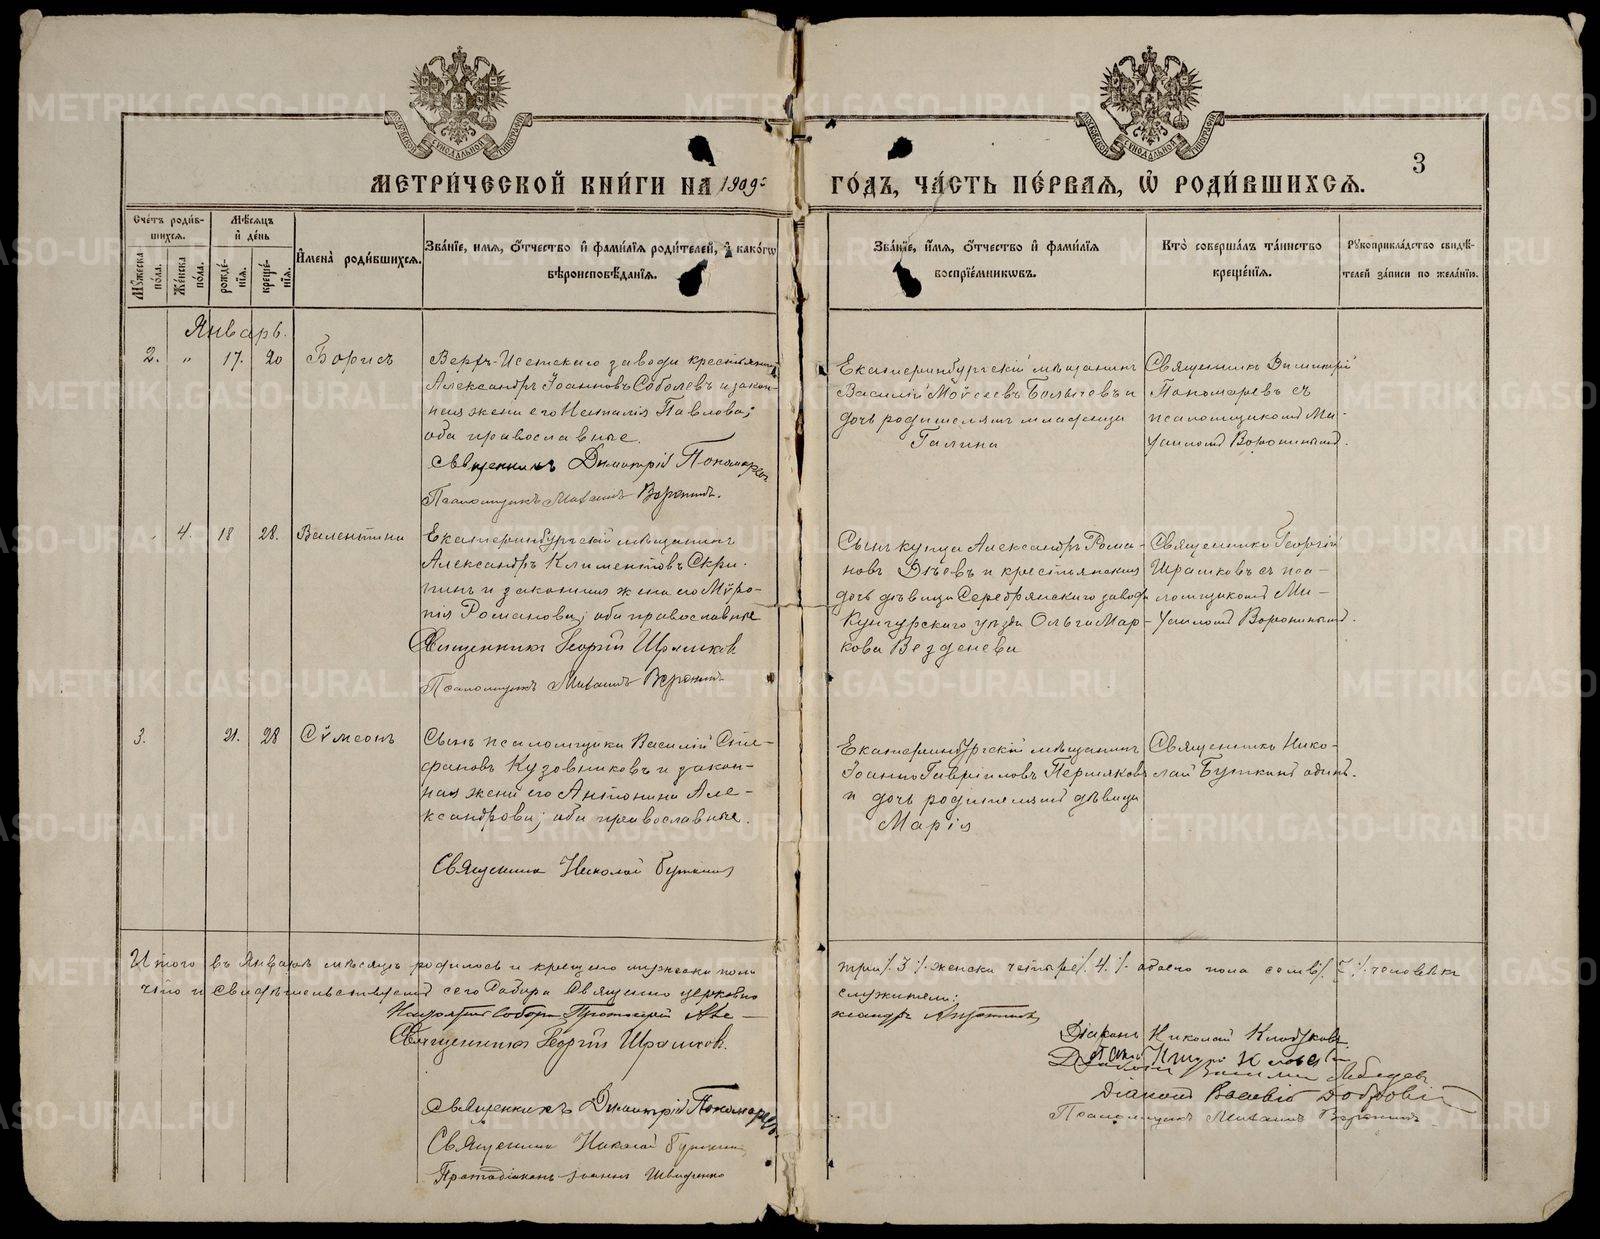 МЕТРИ́ЧЕСКОЙ КНИ́ГИ НА 1909 ГО́ДЪ, ЧА́СТЬ ПЕ́РВАЯ, Ѡ РОДИ́ВШИХСЯ.
3
Сче́тъ роди́в-
шихся.
Му́жеска по́ла.
Же́нска по́ла.
Мѣ́сяцъ
и де́нь
рожде́-
нія.
креще́-
нія.
Имена̀ роди́вшихся.
Зва́нїе, имя, о́тчество и фами́лїя роди́телей, и како́гѡ
вѣроисповѣ́данїя.
Зва́нїе, и́мя, о́тчество и фами́лїя
воспрїе́мникѡвъ.
Кто̀ соверша́лъ та́инство
креще́нїя.
Рукоприкла́дство свидѣ́-
телей за́писи по жела́нїю.
Январь.
2. " 17. 20 Борисъ
Верхъ-Исетскаго завода крестьянинъ
Александръ Іоанновъ Соболевъ и закон-
ная жена его Наталія Павлова;
оба православные.
Священникъ Димитрій Пономаревъ
Псаломщикъ Михаилъ Воронинъ.
Екатеринбургскій мѣщанинъ
Василій Моѵсеевъ и
дочь родителямъ младенца
Галина
Священникъ Димитрій
Пономаревъ съ
псаломщикомъ Ми-
хаиломъ Воронинымъ.
4. 18 28. Валентина
Екатеринбургскій мѣщанинъ
Александръ Климентовъ Скри-
пинъ и законная жена его Мѵро-
нія Романова; оба православные
Священникъ Георгій
Псаломщикъ Михаилъ Воронинъ.
Сынъ купца Александръ Рома-
новъ и крестьянская
дочь дѣвица Серебрянскаго завода
Кунгурскаго уѣзда Ольга Мар-
кова
Священникъ Георгій
съ пса-
ломщикомъ Ми-
хаиломъ Воронинымъ.
3. 21. 28 Сѵмеонъ
Сынъ псаломщика Василій Сте-
фановъ Кузовниковъ и закон-
ная жена его Антонина Але-
ксандрова; оба православные.
Священникъ Николай Буткинъ
Екатеринбургскій мѣщанинъ
Іоаннъ Гавріиловъ Пермяковъ
и дочь родителямъ дѣвица
Марія
Священникъ Нико-
лай Буткинъ одинъ.
Итого въ Январѣ мѣсяцѣ родилось и крещено мужеска пола три /.3./. женска четыре /.4./. обоего пола семь /.7./. человѣкъ
что и свидѣтельствуемъ сего Собора Священно церковно служители:
Собора Протоіерей Але-
ксандръ
Священникъ Георгій
Священникъ Димитрій Пономаревъ
Священникъ Николай Буткинъ
Протодіаконъ Іоаннъ
Діаконъ Николай
Діаконъ Василій
Псаломщикъ Михаилъ Воронинъ
METRIKI.GASO-URAL.RU